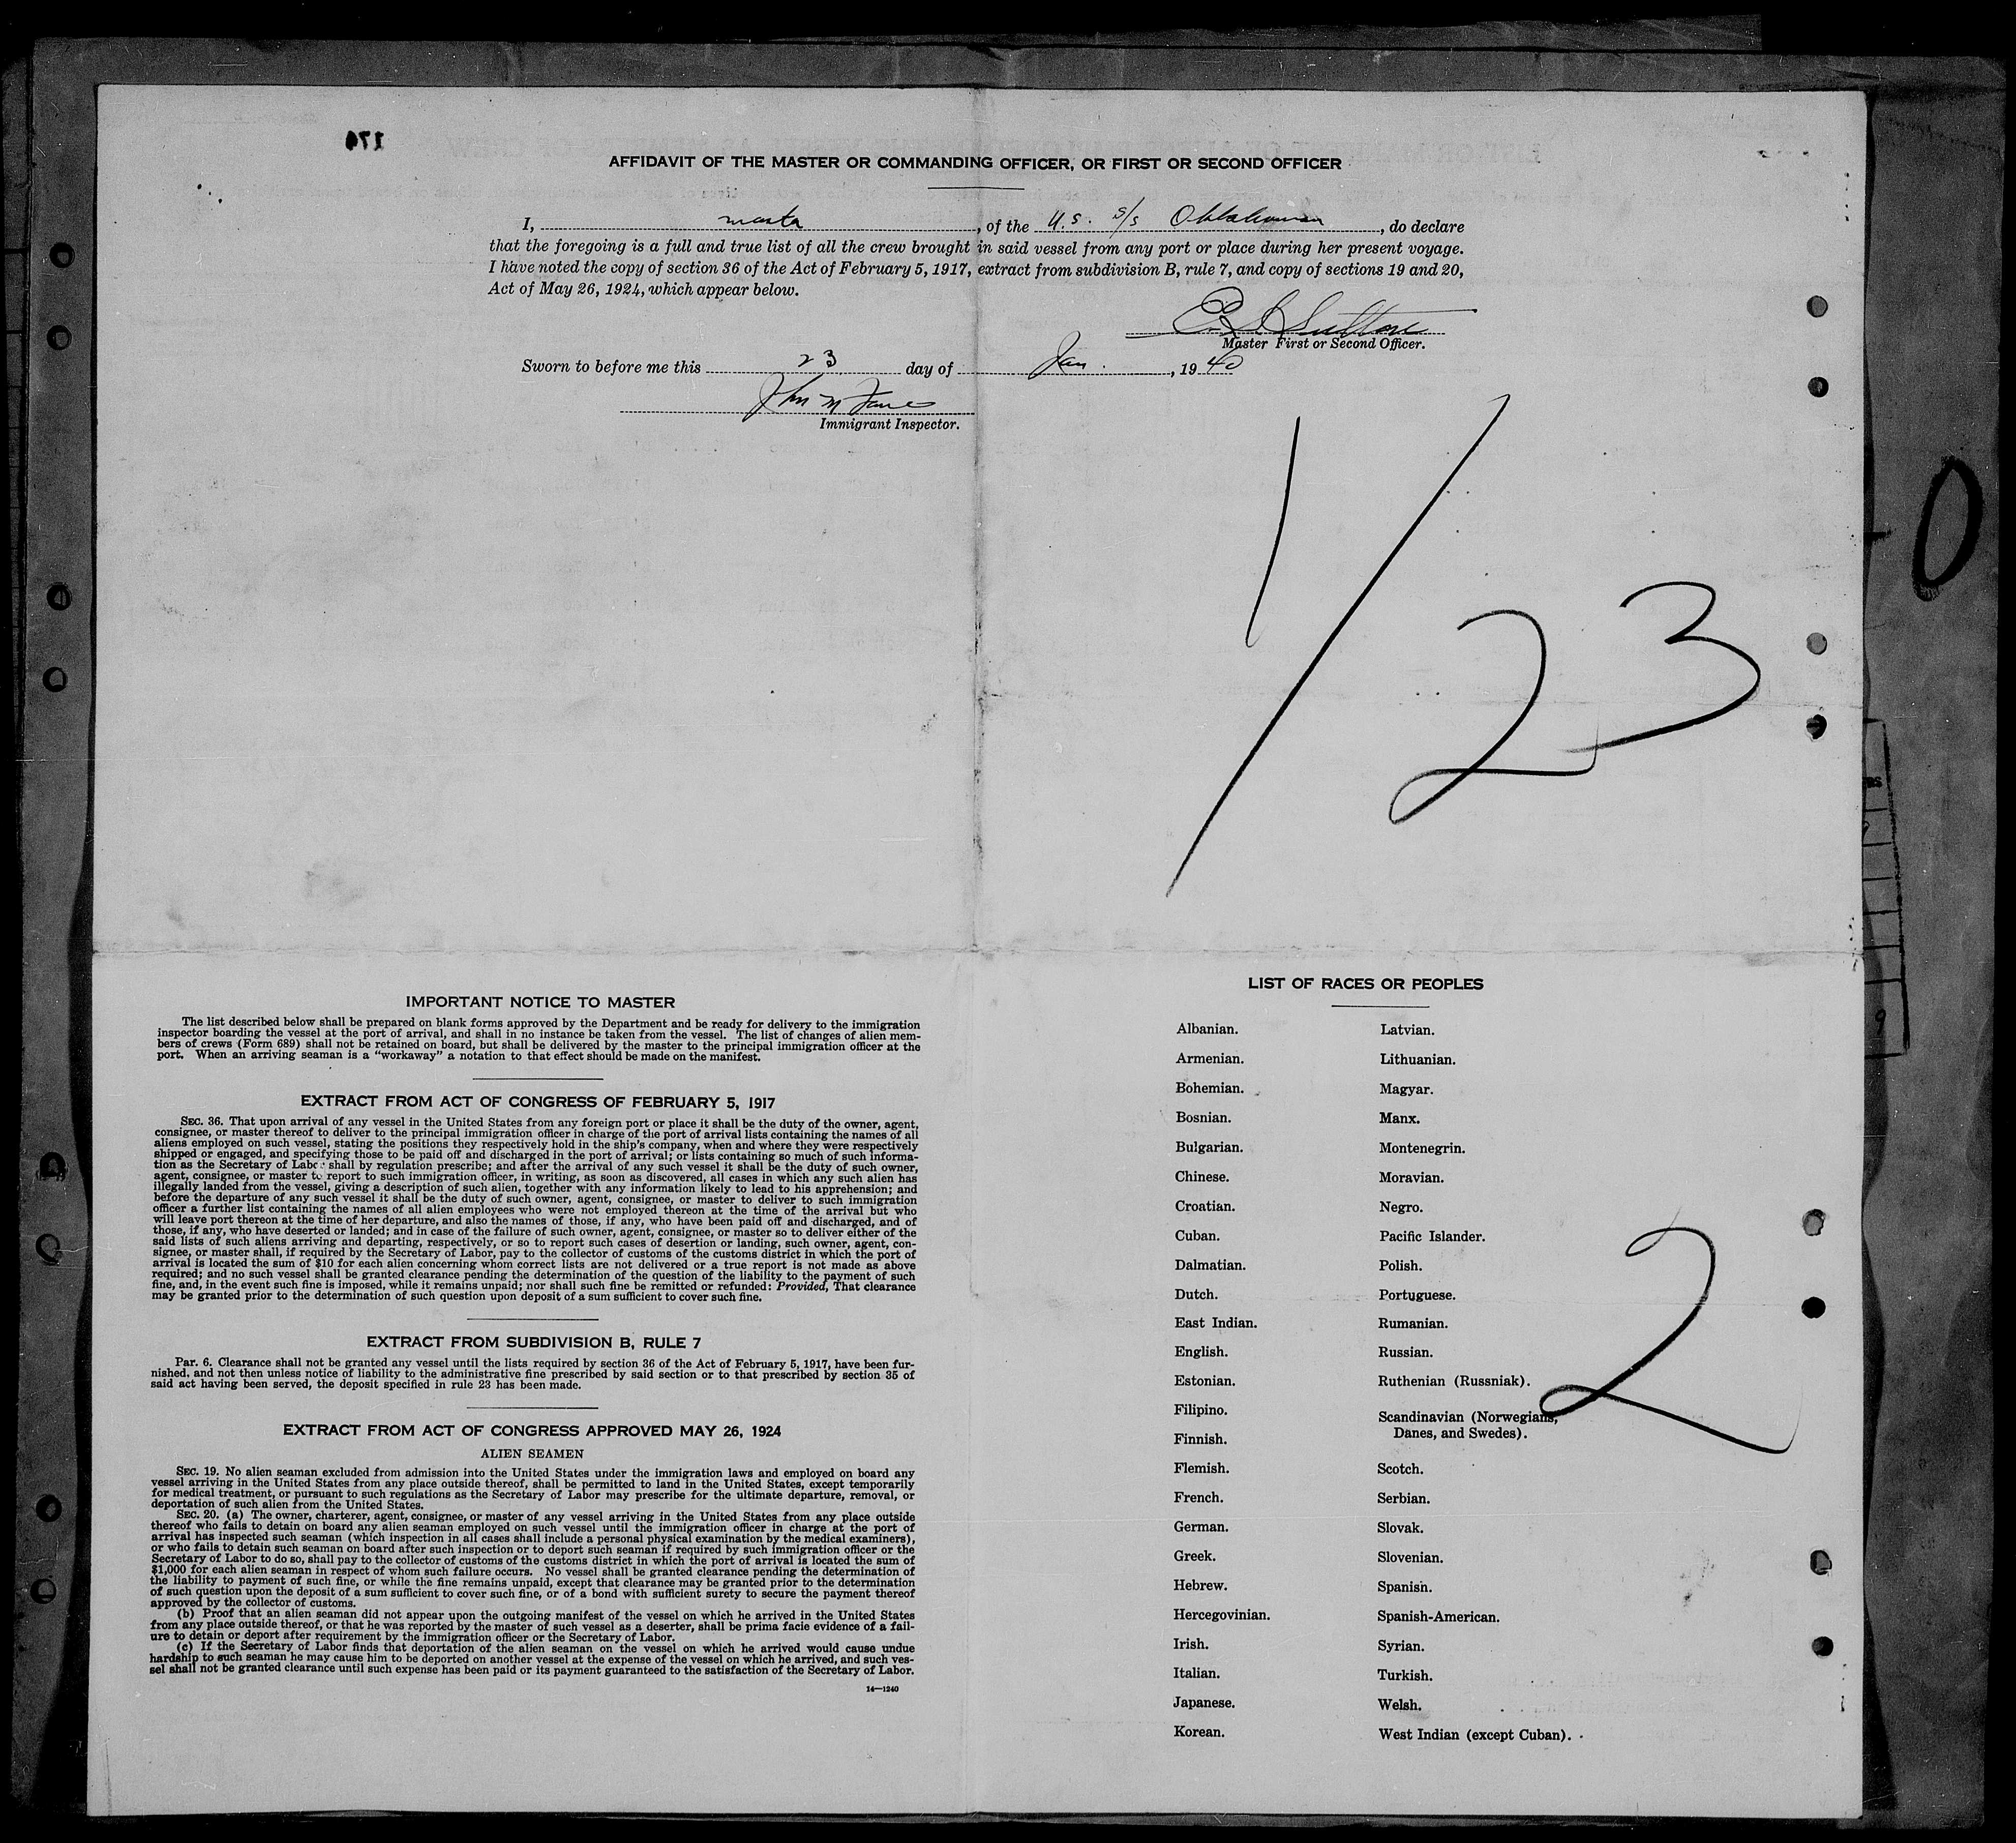 174
AFFIDAVIT OF THE MASTER OR COMMANDING OFFICER, OR FIRST OR SECOND OFFICER
I, master, of the U.S. s/s Oklahoman, do declare
that the foregoing is a full and true list of all the crew brought in said vessel from any port or place during her present voyage.
I have noted the copy of section 36 of the Act of February 5, 1917, extract from subdivision B, rule 7, and copy of sections 19 and 20,
Act of May 26, 1924, which appear below.
Sutton
Master First or Second Officer.
Sworn to before me this 23 day of Jan., 1940
John M
Immigrant Inspector.
1/23
0
IMPORTANT NOTICE TO MASTER
The list described below shall be prepared on blank forms approved by the Department and be ready for delivery to the immigration
inspector boarding the vessel at the port of arrival, and shall in no instance be taken from the vessel. The list of changes of alien mem-
bers of crews (Form 689) shall not be retained on board, but shall be delivered by the master to the principal immigration officer at the
port. When an arriving seaman is a "workaway" a notation to that effect should be made on the manifest.
EXTRACT FROM ACT OF CONGRESS OF FEBRUARY 5, 1917
SEC. 36. That upon arrival of any vessel in the United States from any foreign port or place it shall be the duty of the owner, agent,
consignee, or master thereof to deliver to the principal immigration officer in charge of the port of arrival lists containing the names of all
aliens employed on such vessel, stating the positions they respectively hold in the ship's company, when and where they were respectively
shipped or engaged, and specifying those to be paid off and discharged in the port of arrival; or lists containing so much of such informa-
tion as the Secretary of Labor shall by regulation prescribe; and after the arrival of any such vessel it shall be the duty of such owner,
agent, consignee, or master to report to such immigration officer, in writing, as soon as discovered, all cases in which any such alien has
illegally landed from the vessel, giving a description of such alien, together with any information likely to lead to his apprehension; and
before the departure of any such vessel it shall be the duty of such owner, agent, consignee, or master to deliver to such immigration
officer a further list containing the names of all alien employees who were not employed thereon at the time of the arrival but who
will leave port thereon at the time of her departure, and also the names of those, if any, who have been paid off and discharged, and of
those, if any, who have deserted or landed; and in case of the failure of such owner, agent, consignee, or master so to deliver either of the
said lists of such aliens arriving and departing, respectively, or so to report such cases of desertion or landing, such owner, agent, con-
signee, or master shall, if required by the Secretary of Labor, pay to the collector of customs of the customs district in which the port of
arrival is located the sum of $10 for each alien concerning whom correct lists are not delivered or a true report is not made as above
required; and no such vessel shall be granted clearance pending the determination of the question of the liability to the payment of such
fine, and, in the event such fine is imposed, while it remains unpaid; nor shall such fine be remitted or refunded: Provided, That clearance
may be granted prior to the determination of such question upon deposit of a sum sufficient to cover such fine.
EXTRACT FROM SUBDIVISION B, RULE 7
Par. 6. Clearance shall not be granted any vessel until the lists required by section 36 of the Act of February 5, 1917, have been fur-
nished, and not then unless notice of liability to the administrative fine prescribed by said section or to that prescribed by section 35 of
said act having been served, the deposit specified in rule 23 has been made.
EXTRACT FROM ACT OF CONGRESS APPROVED MAY 26, 1924
ALIEN SEAMEN
SEC. 19. No alien seaman excluded from admission into the United States under the immigration laws and employed on board any
vessel arriving in the United States from any place outside thereof, shall be permitted to land in the United States, except temporarily
for medical treatment, or pursuant to such regulations as the Secretary of Labor may prescribe for the ultimate departure, removal, or
deportation of such alien from the United States.
SEC. 20. (a) The owner, charterer, agent, consignee, or master of any vessel arriving in the United States from any place outside
thereof who fails to detain on board any alien seaman employed on such vessel until the immigration officer in charge at the port of
arrival has inspected such seaman (which inspection in all cases shall include a personal physical examination by the medical examiners),
or who fails to detain such seaman on board after such inspection or to deport such seaman if required by such immigration officer or the
Secretary of Labor to do so, shall pay to the collector of customs of the customs district in which the port of arrival is located the sum of
$1,000 for each alien seaman in respect of whom such failure occurs. No vessel shall be granted clearance pending the determination of
the liability to payment of such fine, or while the fine remains unpaid, except that clearance may be granted prior to the determination
of such question upon the deposit of a sum sufficient to cover such fine, or of a bond with sufficient surety to secure the payment thereof
approved by the collector of customs.
(b) Proof that an alien seaman did not appear upon the outgoing manifest of the vessel on which he arrived in the United States
from any place outside thereof, or that he was reported by the master of such vessel as a deserter, shall be prima facie evidence of a fail-
ure to detain or deport after requirement by the immigration officer or the Secretary of Labor.
(c) If the Secretary of Labor finds that deportation of the alien seaman on the vessel on which he arrived would cause undue
hardship to such seaman he may cause him to be deported on another vessel at the expense of the vessel on which he arrived, and such ves-
sel shall not be granted clearance until such expense has been paid or its payment guaranteed to the satisfaction of the Secretary of Labor.
14—1240
LIST OF RACES OR PEOPLES
Albanian.
Armenian.
Bohemian.
Bosnian.
Bulgarian.
Chinese.
Croatian.
Cuban.
Dalmatian.
Dutch.
East Indian.
English.
Estonian.
Filipino.
Finnish.
Flemish.
French.
German.
Greek.
Hebrew.
Hercegovinian.
Irish.
Italian.
Japanese.
Korean.
Latvian.
Lithuanian.
Magyar.
Manx.
Montenegrin.
Moravian.
Negro.
Pacific Islander.
Polish.
Portuguese.
Rumanian.
Russian.
Ruthenian (Russniak).
Scandinavian (Norwegians,
Danes, and Swedes).
Scotch.
Serbian.
Slovak.
Slovenian.
Spanish.
Spanish-American.
Syrian.
Turkish.
Welsh.
West Indian (except Cuban).
2